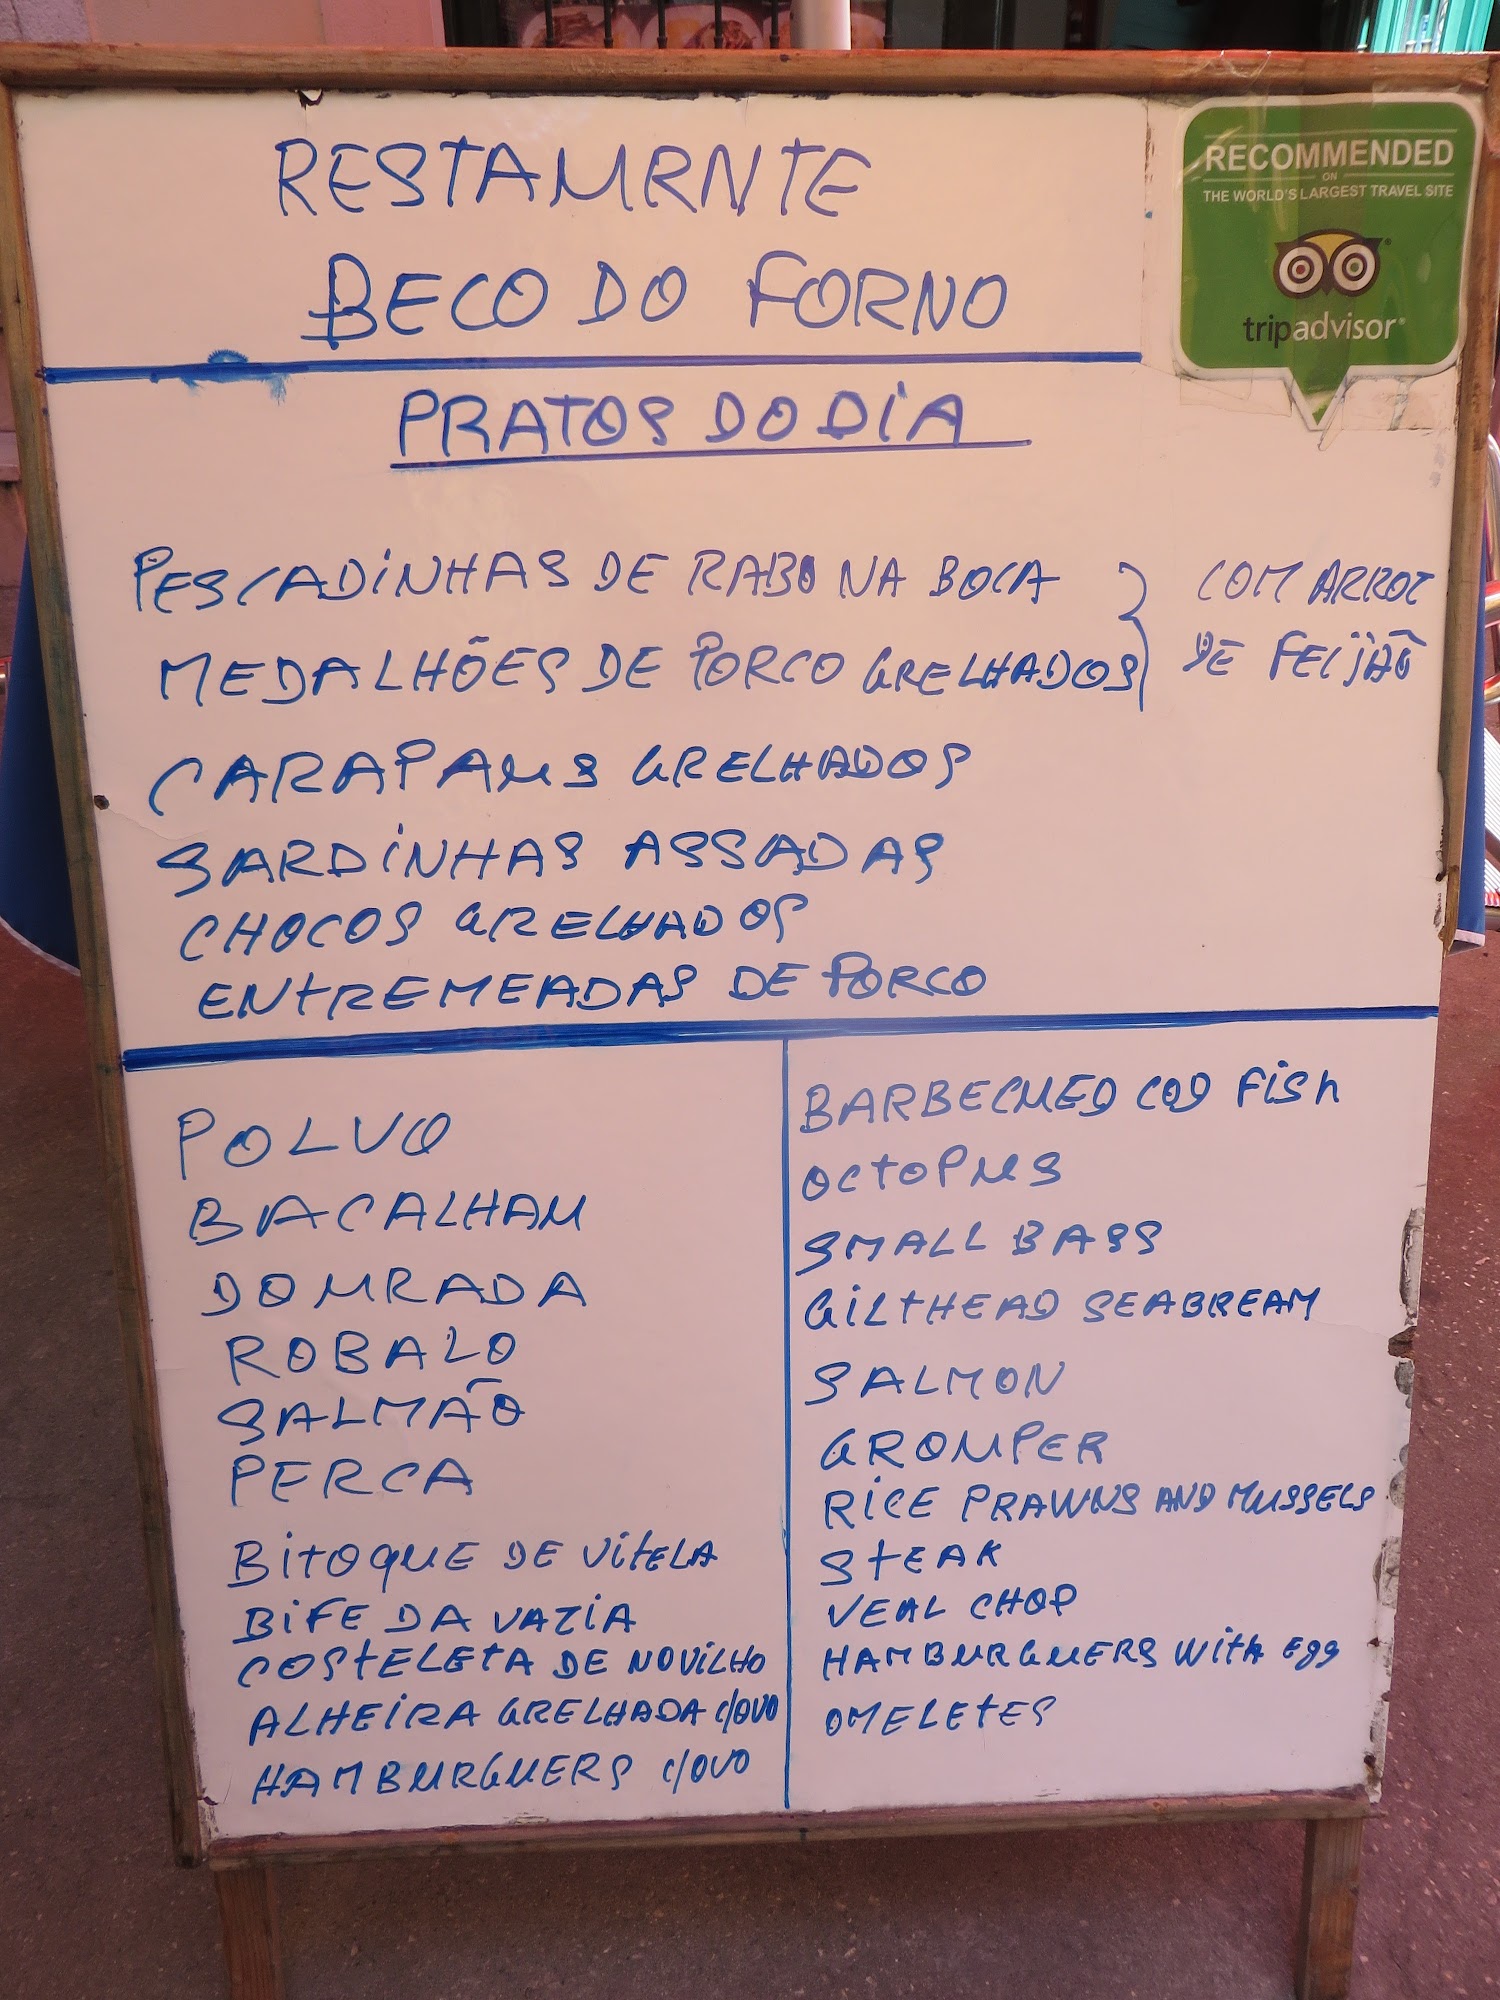 RESTAURNTE
BECO DO FORNO
RECOMMENDED
ON
THE WORLD'S LARGEST TRAVEL SITE
tripadvisor®
PRATOS DO DIA
PESCADINHAS DE RABO NA BOCA
MEDALHÕES DE PORCO GRELHADOS
COM ARROZ
DE FEIJÃO
CARAPAUS GRELHADOS
SARDINHAS ASSADAS
CHOCOS GRELHADOS
ENTREMEADAS DE PORCO
POLVO
BACALHAU
DOURADA
ROBALO
SALMÃO
PERCA
BITOQUE DE VITELA
BIFE DA VAZIA
COSTELETA DE NOVILHO
ALHEIRA GRELHADA C/OVO
HAMBURGUERS C/OVO
BARBECUED COD FISH
OCTOPUS
SMALL BASS
GILTHEAD SEABREAM
SALMON
GROUPER
RICE PRAWNS AND MUSSELS
STEAK
VEAL CHOP
HAMBURGUERS WITH EGG
OMELETES